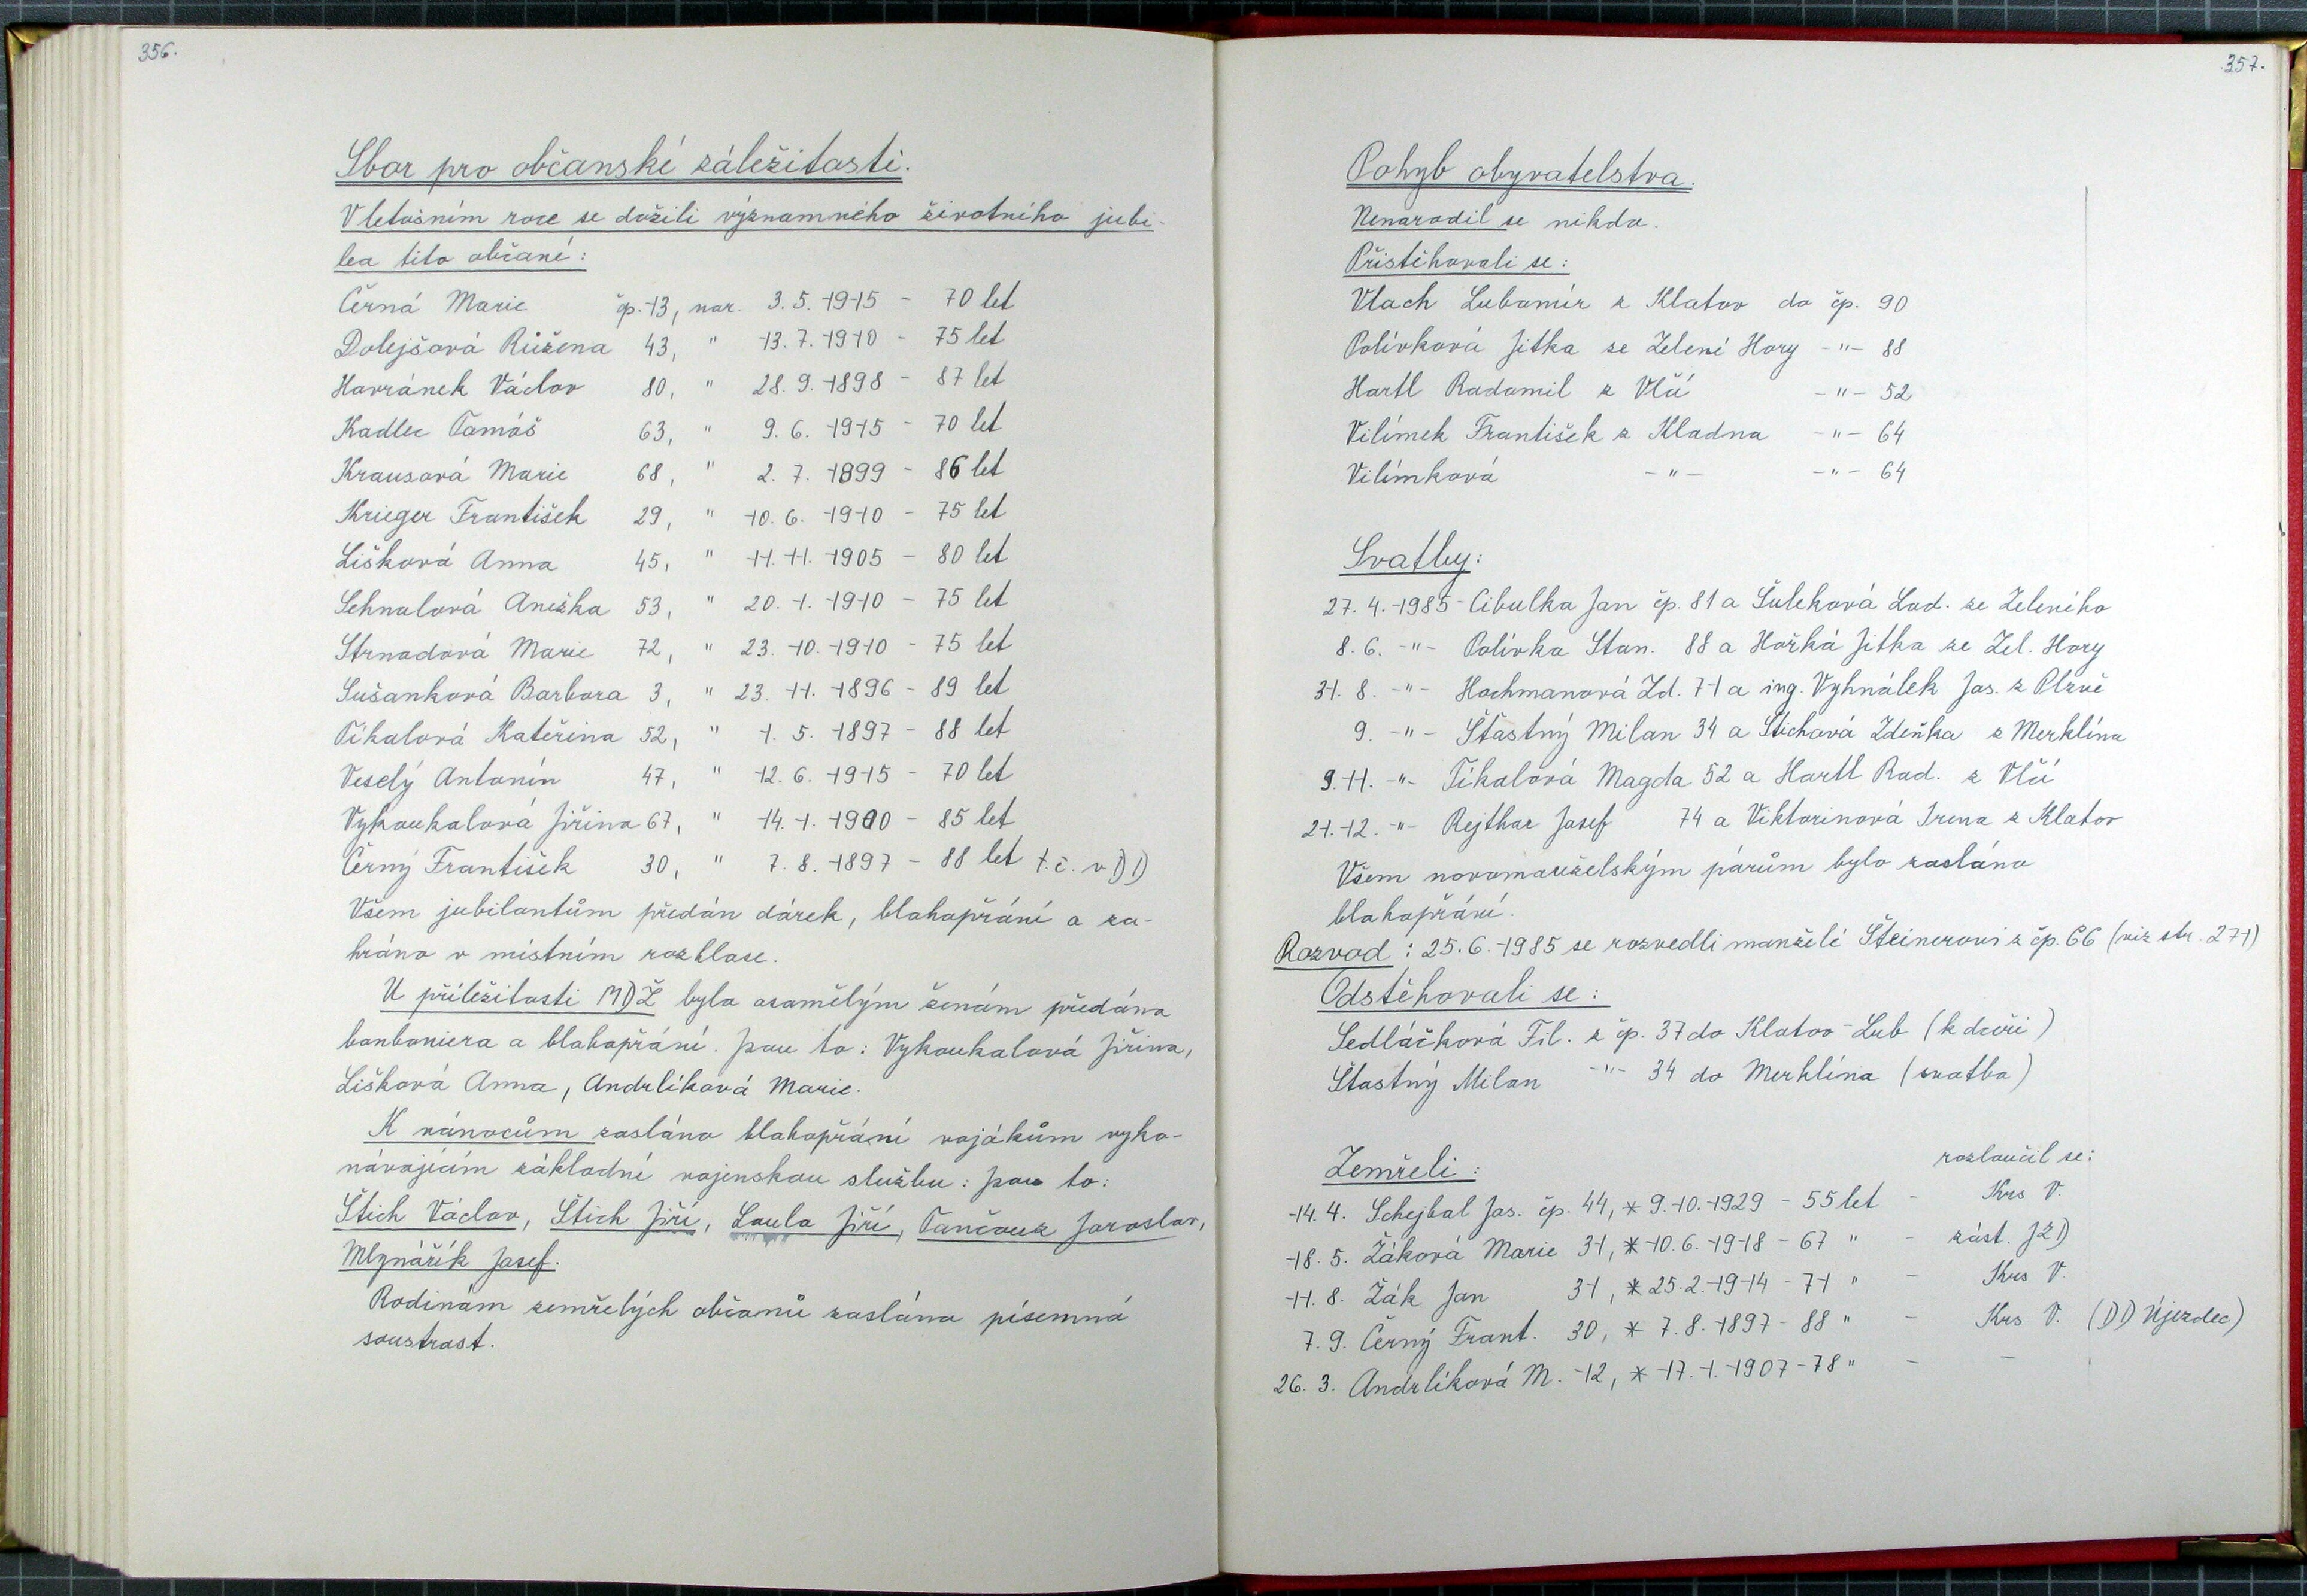 356.
Sbor pro občanské záležitosti.
V letošním roce se dožili významného životního jubi-
lea tito občané:
Černá Marie čp. 13, nar. 3. 5. 1915 - 70 let
Dolejšová Růžena 43, " 13. 7. 1910 - 75 let
Havránek Václav 80, " 28. 9. 1898 - 87 let
Kadlec Tomáš 63, " 9. 6. 1915 - 70 let
Krausová Marie 68, " 2. 7. 1899 - 86 let
Krieger František 29, " 10. 6. 1910 - 75 let
Lišková Anna 45, " 11. 11. 1905 - 80 let
Sehnalová Anežka 53, " 20. 1. 1910 - 75 let
Strnadová Marie 72, " 23. 10. 1910 - 75 let
Sušanková Barbora 3, " 23. 11. 1896 - 89 let
Tikalová Kateřina 52, " 1. 5. 1897 - 88 let
Veselý Antonín 47, " 12. 6. 1915 - 70 let
Vykoukalová Jiřina 67, " 14. 1. 1900 - 85 let
Černý František 30, " 7. 8. 1897 - 88 let t. č. v DD
Všem jubilantům předán dárek, blahopřání a za-
hráno v místním rozhlase.
U příležitosti MDŽ bylo osamělým ženám předána
bonboniera a blahopřání. Jsou to: Vykoukalová Jiřina,
Lišková Anna, Andrlíková Marie.
K vánocům zasláno blahopřání vojákům vyko-
návajícím základní vojenskou službu: Jsou to:
Štich Václav, Štich Jiří, Loula Jiří, Tančouz Jaroslav,
Mlynářík Josef.
Rodinám zemřelých občanů zaslána písemná
soustrast.
357.
Pohyb obyvatelstva.
Nenarodil se nikdo.
Přistěhovali se:
Vlach Lubomír z Klatov do čp. 90
Polívková Jitka ze Zelené Hory -"- 88
Hartl Radomil z Vlčí -"- 52
Vilímek František z Kladna -"- 64
Vilímková -"- -"- 64
Svatby:
27. 4. 1985 - Cibulka Jan čp. 81 a Šuleková Lud. ze Zeleného
8. 6. -"- Polívka Stan. 88 a Hořká Jitka ze Zel. Hory
31. 8. -"- Hochmanová Zd. 71 a ing. Vyhnálek Jos. z Plzně
9. -"- Šťastný Milan 34 a Štichová Zdeňka z Merklína
9. 11. -"- Tikalová Magda 52 a Hartl Rad. z Vlčí
21. 12. -"- Rejthar Josef 74 a Viktorinová Irena z Klatov
Všem novomanželským párům bylo zasláno
blahopřání.
Rozvod: 25. 6. 1985 se rozvedli manželé Šteinerovi z čp. 66 (viz str. 271)
Odstěhovali se:
Sedláčková Fil. z čp. 37 do Klatov - Lub (k dceři)
Šťastný Milan -"- 34 do Merklína (svatba)
Zemřeli: rozloučil se:
14. 4. Schejbal Jos. čp. 44, * 9. 10. 1929 - 55 let - Krs V.
18. 5. Žáková Marie 31, * 10. 6. 1918 - 67 " - zást. JZD
11. 8. Žák Jan 31, * 25. 2. 1914 - 71 " - Krs V.
7. 9. Černý Frant. 30, * 7. 8. 1897 - 88 " - Krs V. (DD Újezdec)
26. 3. Andrlíková M. 12, * 17. 1. 1907 - 78 " - -